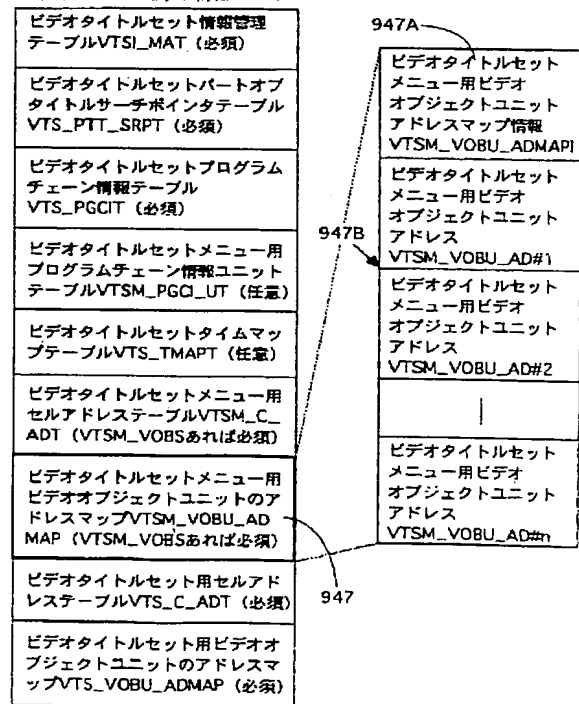 ビデオタイトルセット情報管理
テーブルVTSI_MAT（必須）
ビデオタイトルセットパートオブ
タイトルサーチポインタテーブル
VTS_PTT_SRPT（必須）
ビデオタイトルセットプログラム
チェーン情報テーブル
VTS_PGCIT（必須）
ビデオタイトルセットメニュー用
プログラムチェーン情報ユニット
テーブルVTSM_PGCI_UT（任意）
ビデオタイトルセットタイムマッ
プテーブルVTS_TMAPT（任意）
ビデオタイトルセットメニュー用
セルアドレステーブルVTSM_C_
ADT（VTSM_VOBSあれば必須）
ビデオタイトルセットメニュー用
ビデオオブジェクトユニットのア
ドレスマップVTSM_VOBU_AD
MAP（VTSM_VOBSあれば必須）
ビデオタイトルセット用セルアド
レステーブルVTS_C_ADT（必須）
ビデオタイトルセット用ビデオオ
ブジェクトユニットのアドレスマ
ップVTS_VOBU_ADMAP（必須）
947
947A
ビデオタイトルセット
メニュー用ビデオ
オブジェクトユニット
アドレスマップ情報
VTSM_VOBU_ADMAPI
947B
ビデオタイトルセット
メニュー用ビデオ
オブジェクトユニット
アドレス
VTSM_VOBU_AD#1
ビデオタイトルセット
メニュー用ビデオ
オブジェクトユニット
アドレス
VTSM_VOBU_AD#2
ビデオタイトルセット
メニュー用ビデオ
オブジェクトユニット
アドレス
VTSM_VOBU_AD#n